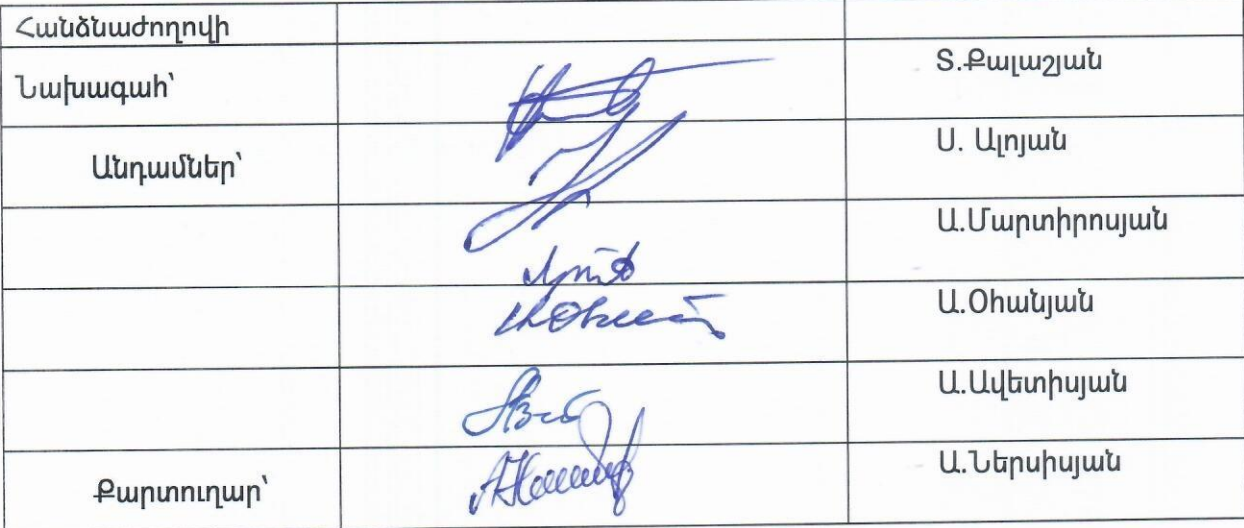 Հանձնաժողովի
Նախագահ՝ Տ.Քալաշյան
Անդամներ՝ Ս. Ալոյան
Ա.Մարտիրոսյան
Ա.Օհանյան
Ա.Ավետիսյան
Քարտուղար՝ Ա.Ներսիսյան